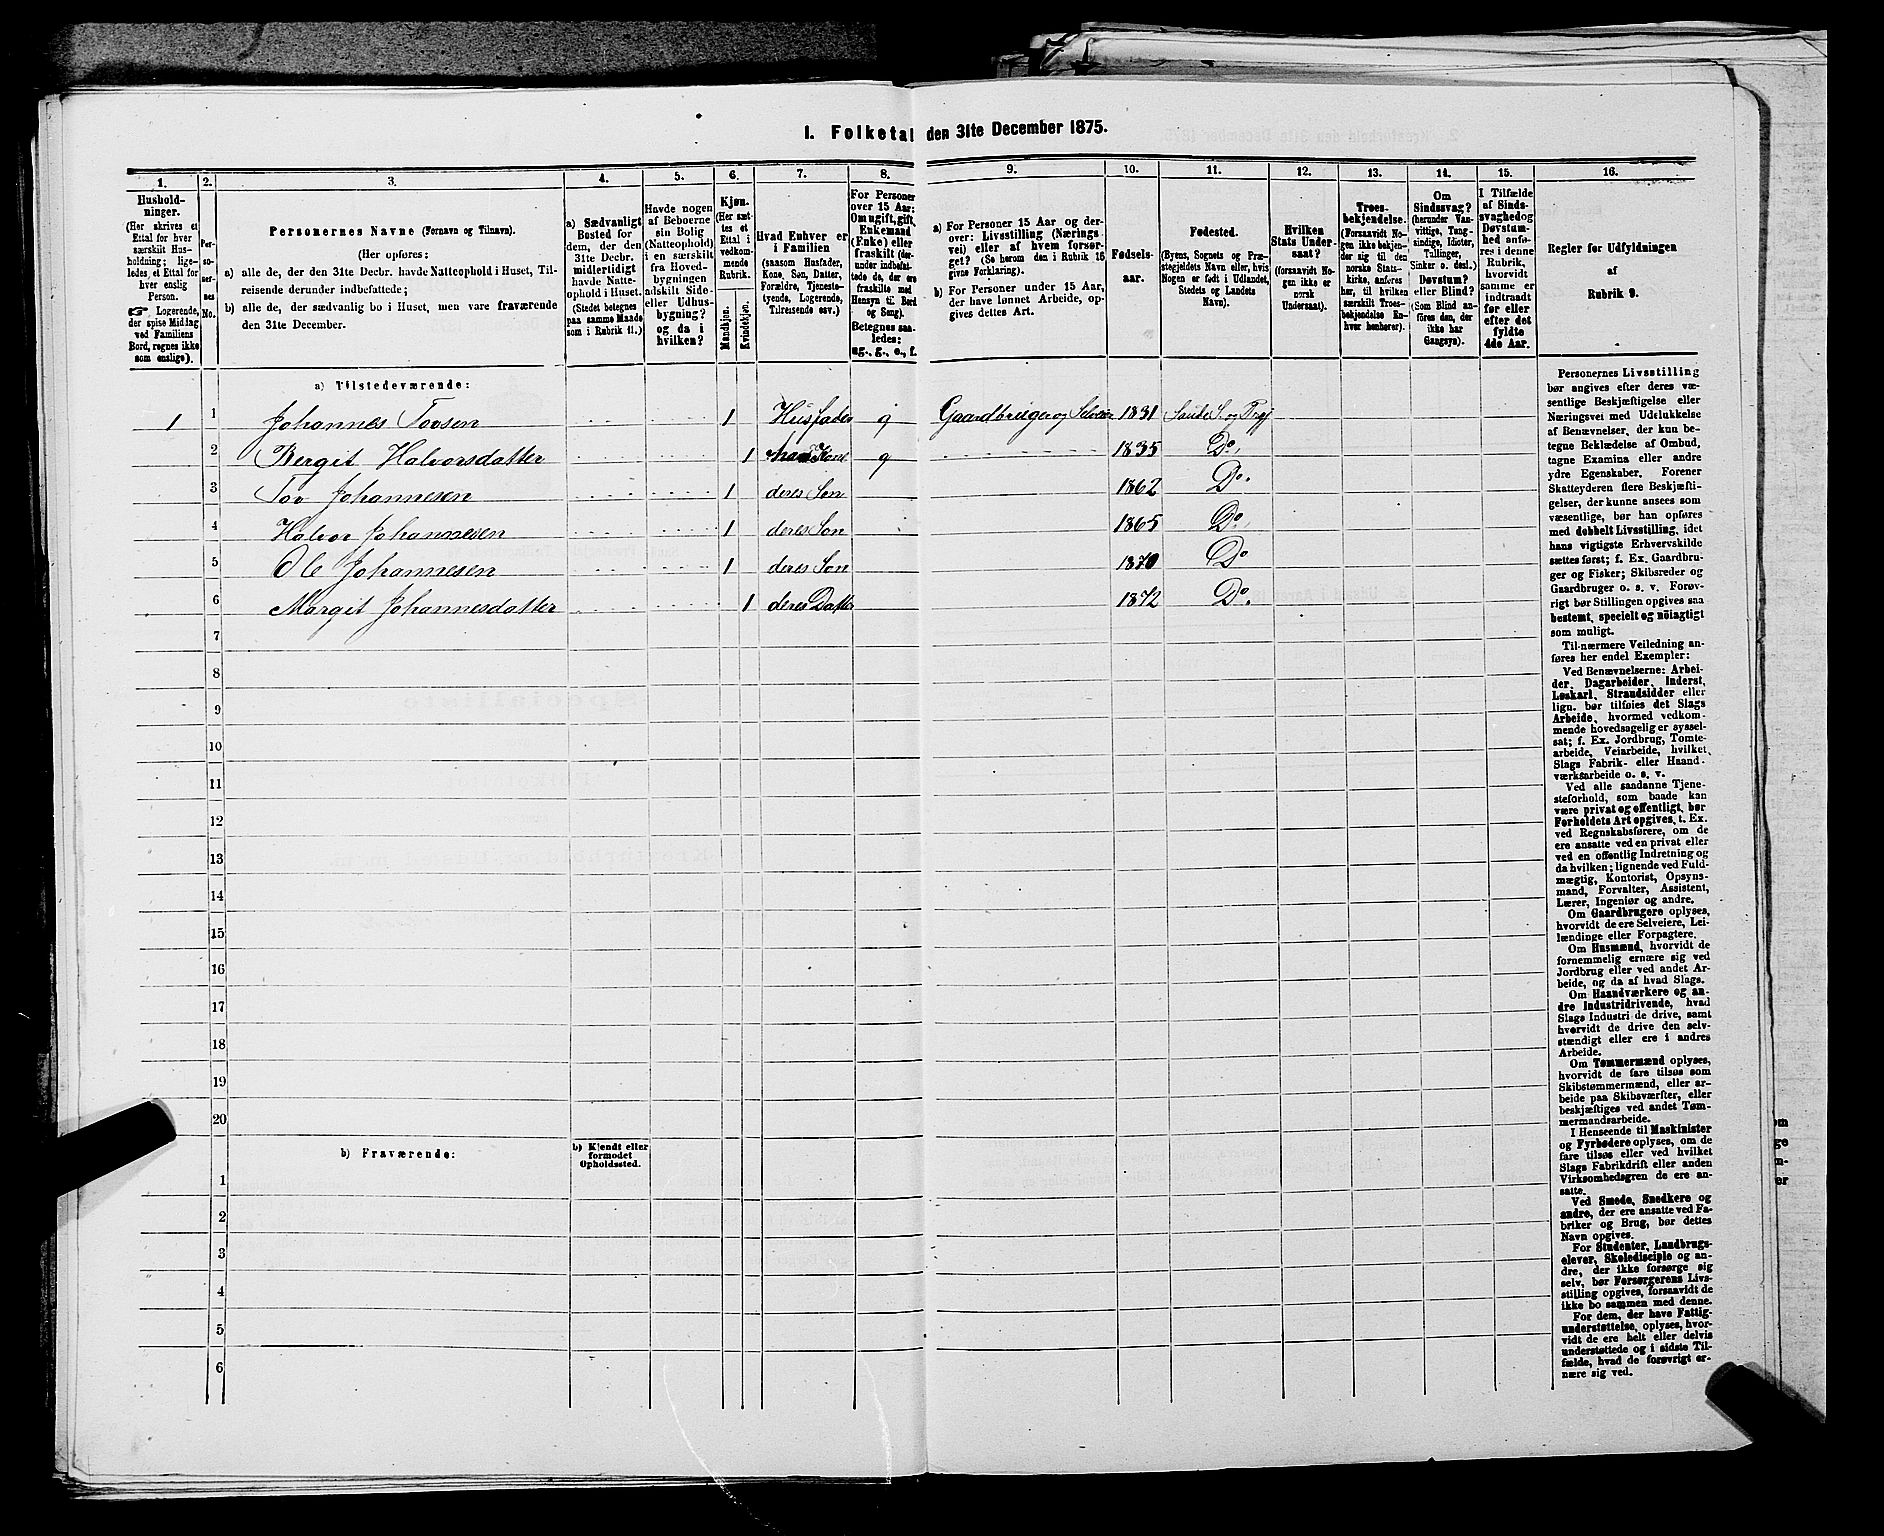 I. Folketal den 31te December 1875.
1. 2. 3. 4. 5. 6. 7. 8. 9. 10. 11. 12. 13. 14. 15. 16.
Hushold-
ninger.
(Her skrives et
Ettal for hver
særskilt Hus-
holdning; lige-
ledes et Ettal for
hver enslig
Person.
☞ Logerende,
der spise Middag
ved Familiens
Bord, regnes ikke
som enslige).
Per-
so-
ner-
nes
No.
Personernes Navne (Fornavn og Tilnavn).
(Her opføres:
a) alle de, der den 31te Decbr. havde Natteophold i Huset, Til-
reisende derunder indbefattede;
b) alle de, der sædvanlig bo i Huset, men vare fraværende
den 31te December.
a) Sædvanligt
Bosted for
dem, der den
31te Decbr.
midlertidigt
havde Natte-
ophold i Huset.
(Stedet betegnes
paa samme Maade
som i Rubrik 11.)
Havde nogen
af Beboerne
sin Bolig
(Natteophold)
i en særskilt
fra Hoved-
bygningen
adskilt Side-
eller Udhus-
bygning?
og da i
hvilken?
Kjøn.
(Her sæt-
tes et
Ettal i
vedkom-
mende
Rubrik.
Mandkjøn.
Kvindekjøn.
Hvad Enhver er
i Familien
(saasom Husfader,
Kone, Søn, Datter,
Forældre, Tjeneste-
tyende, Logerende,
Tilreisende osv.)
For Personer
over 15 Aar:
Om ugift, gift,
Enkemand
(Enke) eller
fraskilt (der-
under indbefat-
tede de, der ere
fraskilte med
Hensyn til Bord
og Seng).
Betegnes saa-
ledes:
ug., g., e., f.
a) For Personer 15 Aar og der-
over: Livsstilling (Nærings-
vei) eller af hvem forsør-
get? (Se herom den i Rubrik 16
givne Forklaring).
b) For Personer under 15 Aar,
der have lønnet Arbeide, op-
gives dettes Art.
Fødsels-
aar.
Fødested.
(Byens, Sognets og Præ-
stegjeldets Navn eller, hvis
Nogen er født i Udlandet,
Stedets og Landets
Navn).
Hvilken
Stats Under-
saat?
(forsaavidt No-
gen ikke er
norsk
Undersaat).
Troes-
bekjendelse.
(Forsaavidt No-
gen ikke bekjen-
der sig til den
norske Stats-
kirke, anføres
her, til hvilken
særskilt Troes-
bekjendelse En-
hver henhører).
Om
Sindssvag?
(herunder Van-
vittige, Tung-
sindige, Idioter,
Tullinger,
Sinker o. desl.)
Døvstum?
eller Blind?
(Som Blind an-
føres den, der
ikke har
Gangsyn).
I Tilfælde
af Sinds-
svaghed og
Døvstum-
hed anfø-
res i denne
Rubrik,
hvorvidt
samme er
indtraadt
før eller
efter det
fyldte
4de Aar.
Regler for Udfyldningen
af
Rubrik 9.
a) Tilstedeværende:
1 1 Johannes Tovsen 1 Husfader g Gaardbruger og Selveier 1831 Saude S. og Prgj
2 Bergit Halvorsdatter 1 Kone g 1835 Do.
3 Tov Johannesen 1 deres Søn 1862 Do.
4 Halvor Johannesen 1 deres Søn 1865 Do.
5 Ole Johannesen 1 deres Søn 1870 Do
6 Margit Johannesdatter 1 deres Datter 1872 Do.
7
8
9
10
11
12
13
14
15
16
17
18
19
20
b) Fraværende:
b) Kjendt eller
formodet
Opholdssted.
1
2
3
4
5
6
Personernes Livsstilling
bør angives efter deres væ-
sentlige Beskjæftigelse eller
Næringsvei med Udelukkelse
af Benævnelser, der kun be-
tegne Beklædelse af Ombud,
tagne Examina eller andre
ydre Egenskaber. Forener
Skatteyderen flere Beskjæfti-
gelser, der kunne ansees som
væsentlige, bør han opføres
med dobbelt Livsstilling, idet
hans vigtigste Erhvervskilde
sættes først; f. Ex. Gaardbru-
ger og Fisker; Skibsreder og
Gaardbruger o. s. v. Forøv-
rigt bør Stillingen opgives saa
bestemt, specielt og nöiagtigt
som muligt.
Til nærmere Veiledning an-
føres her endel Exempler:
Ved Benævnelserne: Arbei-
der, Dagarbeider, Inderst,
Løskarl, Strandsidder eller
lign. bør tilføies det Slags
Arbeide, hvormed vedkom-
mende hovedsagelig er syssel-
sat; f. Ex. Jordbrug, Tomte-
arbeide, Veiarbeide, hvilket
Slags Fabrik- eller Haand-
værksarbeide o. s. v.
Ved alle saadanne Tjene-
steforhold, som baade kan
være privat og offentligt, bør
Forholdets Art opgives, t. Ex.
ved Regnskabsførere, om de
ere ansatte ved en privat eller
ved en offentlig Indretning og
da hvilken; lignende ved Fuld-
mægtig, Kontorist, Opsyns-
mand, Forvalter, Assistent,
Lærer, Ingeniør og andre.
Om Gaardbrugere oplyses,
hvorvidt de ere Selveiere, Lei-
lændinge eller Forpagtere.
Om Husmænd, hvorvidt de
fornemmelig ernære sig ved
Jordbrug eller ved andet Ar-
beide, og da af hvad Slags.
Om Haandværkere og an-
dre Industridrivende, hvad
Slags Industri de drive, samt
hvorvidt de drive den selv-
stændigt eller ere i andres
Arbeide.
Om Tømmermænd oplyses,
hvorvidt de fare tilsøs som
Skibstømmermænd, eller ar-
beide paa Skibsværfter, eller
beskjæftiges ved andet Tøm-
mermandsarbeide.
I Henseende til Maskinister
og Fyrbødere oplyses, om de
fare tilsøs eller ved hvilket
Slags Fabrikdrift eller anden
Virksomhedsgren de ere an-
satte.
Ved Smede, Snedkere og
andre, der ere ansatte ved Fa-
briker og Brug, bør dettes
Navn opgives.
For Studenter, Landbrugs-
elever, Skoledisciple og an-
dre, der ikke forsørge sig
selv, bør Forsørgerens Livs-
stilling opgives, forsaavidt de
ikke bo sammen med denne.
For dem, der have Fattig-
understøttelse, oplyses, hvor-
vidt de ere helt eller delvis
understøttede og i sidste Til-
fælde, hvad de forøvrigt er-
nære sig ved.